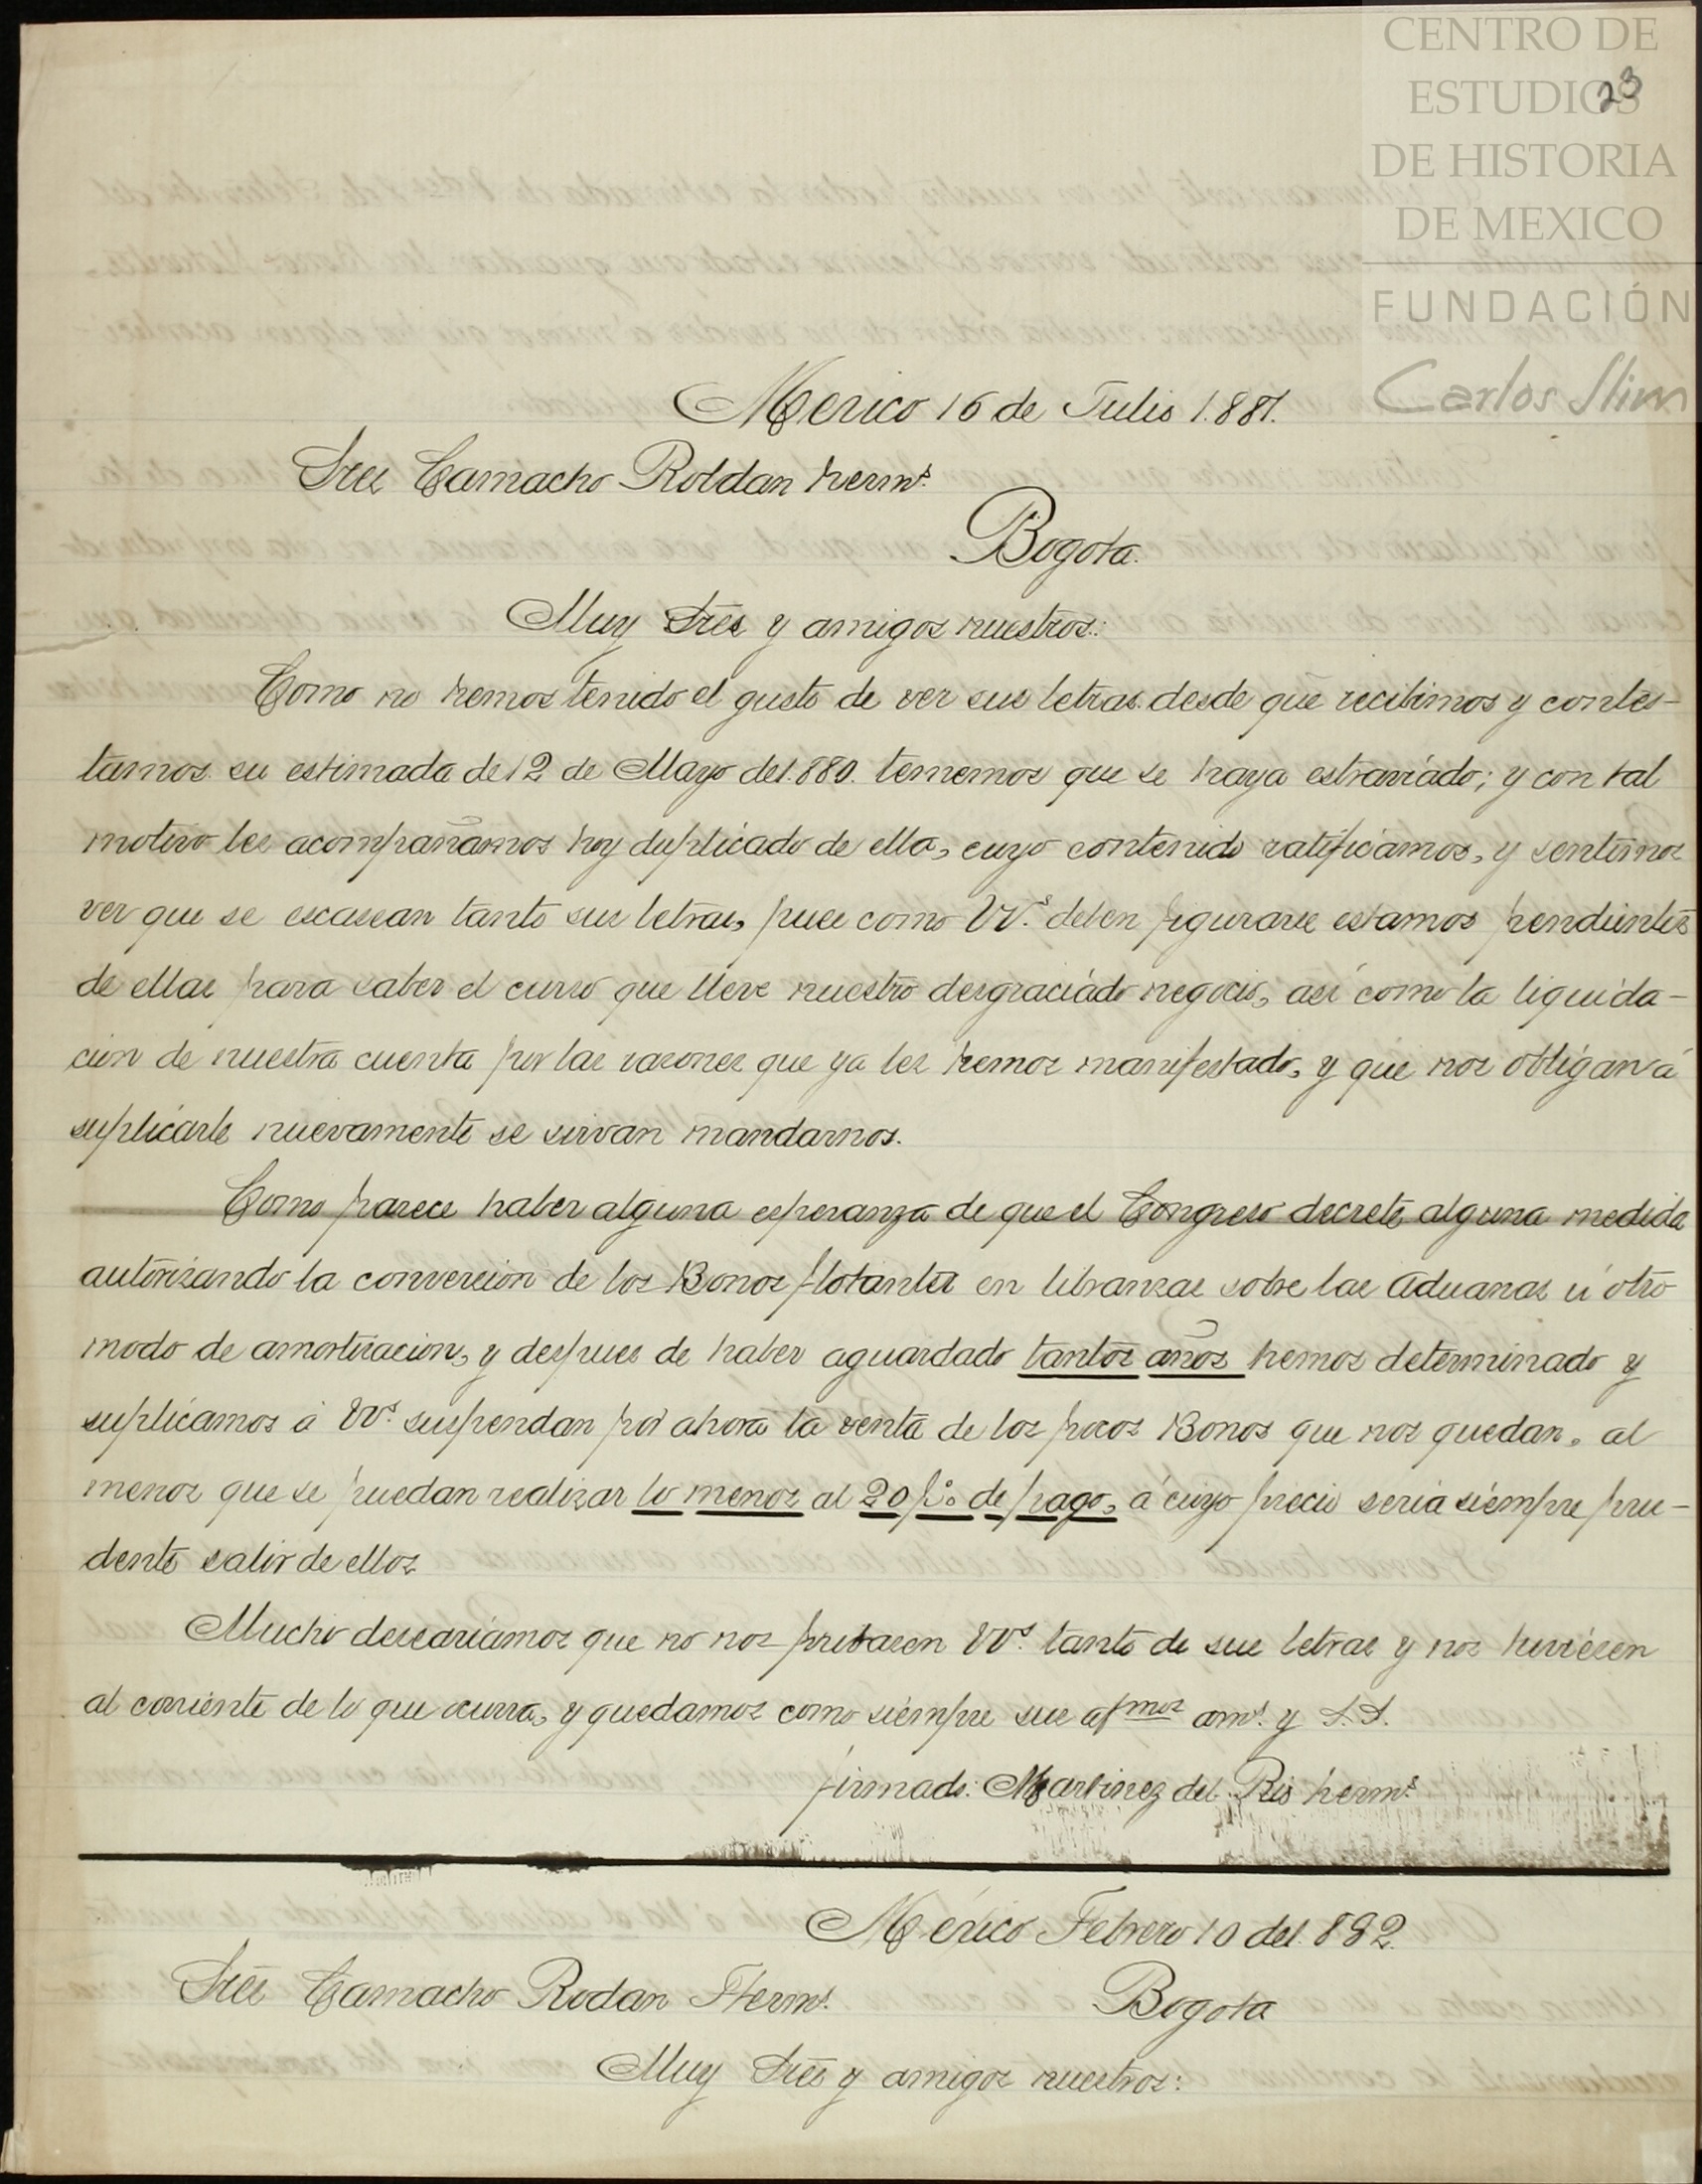 CENTRO DE
ESTUDIOS
DE HISTORIA
DE MEXICO
FUNDACIÓN
Carlos Slim
23
Mexico 16 de Julio 1.881.
Sres Camacho Roldan herms.
Bogota.
Muy Sres y amigos nuestros:
Como no hemos tenido el gusto de ver sus letras desde que recibimos y contes-
tamos su estimada de 12 de Mayo de 1.880. tememos que se haya estraviado; y con tal
motivo les acompañamos hoy duplicado de ella, cuyo contenido ratificamos, y sentimos
ver que se escasean tanto sus letras, pues como VVs. deben figurarse estamos pendientes
de ellas para saber el curso que lleve nuestro desgraciado negocio, asi como la liquida-
cion de nuestra cuenta por las razones que ya les hemos manifestado, y que nos obligan á
suplicarle nuevamente se sirvan mandarnos.
Como parece haber alguna esperanza de que el Congreso decrete alguna medida
autorizando la conversion de los Bonos flotantes en libranzas sobre las Aduanas ú otro
modo de amortizacion, y despues de haber aguardado tantos años hemos determinado y
suplicamos á VVs. suspendan por ahora la venta de los pocos Bonos que nos quedan, al
menos que se puedan realizar lo menos al 20 p%. de pago, á cuyo precio seria siempre pru-
dente salir de ellos
Mucho desearíamos que no nos privasen VVs. tanto de sus letras y nos tuviesen
al corriente de lo que ocurra, y quedamos como siempre sus afmos ams. y S.S.
firmado: Martinez del Rio herms.
México Febrero 10 de 1.882.
Sres Camacho Rodan Herms.
Bogota
Muy Sres y amigos nuestros: